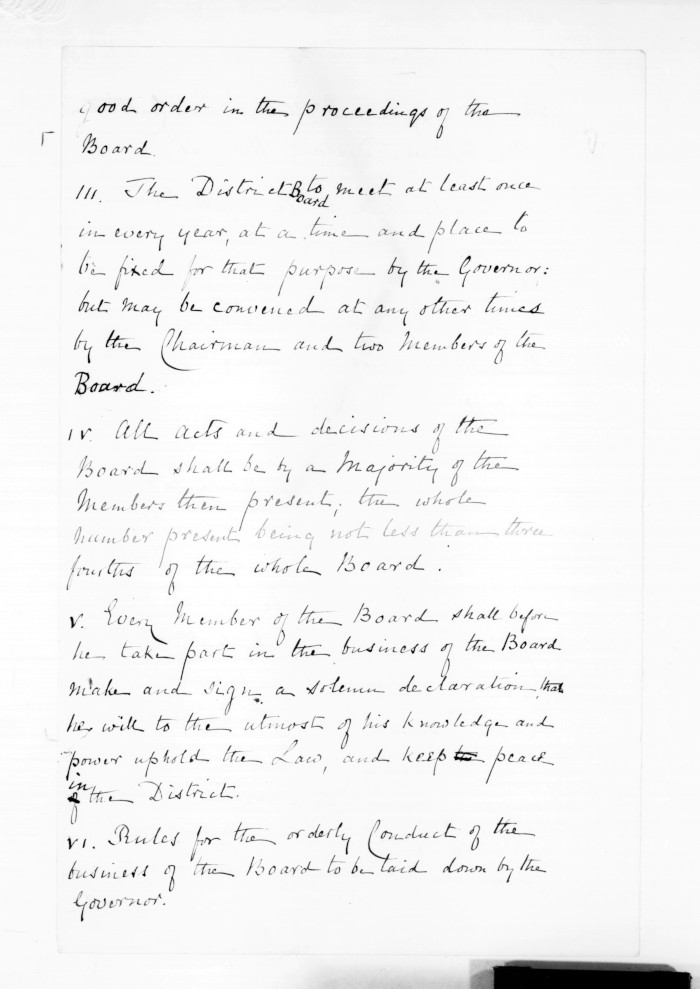 good order in the proceedings of the
Board.
III. The District Board to meet at least once
in every year, at a time and place to
be fixed for that purpose by the Governor:
but may be convened at any other times
by the Chairman and two Members of the
Board.
IV. All acts and decisions of the
Board shall be by a Majority of the
Members then present; the whole
number present being not less than three
fourths of the whole Board.
V. Every Member of the Board shall before
he take part in the business of the Board
make and sign a solemn declaration that
he will to the utmost of his knowledge and
power uphold the Law, and keep the peace
in of the District.
VI. Rules for the orderly Conduct of the
business of the Board to be laid down by the
Governor.